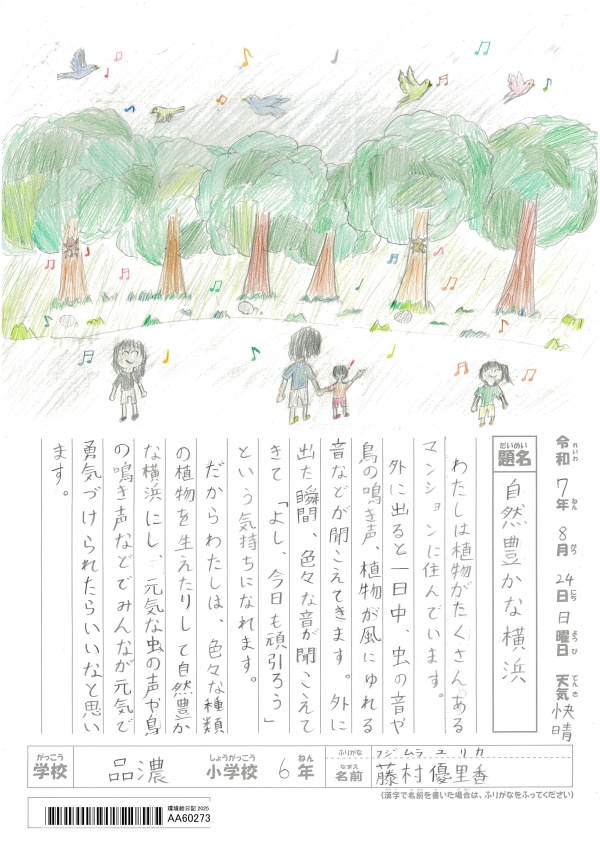 令和 7年 8月 24日 日曜日 天気 快晴
れいわ ねん がつ にち ようび てんき
だいめい
題名
自然豊かな横浜
わたしは植物がたくさんある
マンションに住んでいます。
外に出ると一日中、虫の音や
鳥の鳴き声、植物が風にゆれる
音などが聞こえてきます。外に
出た瞬間、色々な音が聞こえて
きて「よし、今日も頑引ろう」
という気持ちになれます。
だからわたしは、色々な種類
の植物を生えたりして自然豊か
な横浜にし、元気な虫の声や鳥
の鳴き声などでみんなが元気で
勇気づけられたらいいなと思い
ます。
がっこう しょうがっこう ねん
学校 品濃 小学校 6年
ふりがな フジムラ ユリカ
なまえ
名前 藤村優里香
(漢字で名前を書いた場合は、ふりがなをふってください)
環境絵日記 2025
AA60273